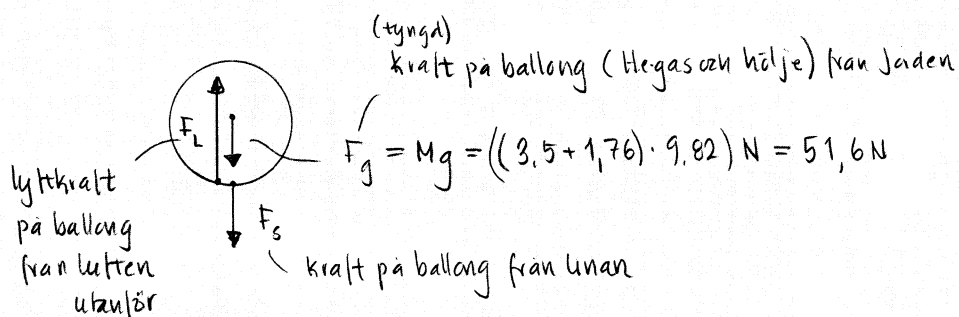 (tyngd)
kraft på ballong (He-gas och hölje) från Jorden
F_L
F_g = Mg = ((3,5 + 1,76) · 9,82) N = 51,6 N
lyftkraft
på ballong
från luften
utanför
F_s
kraft på ballong från linan